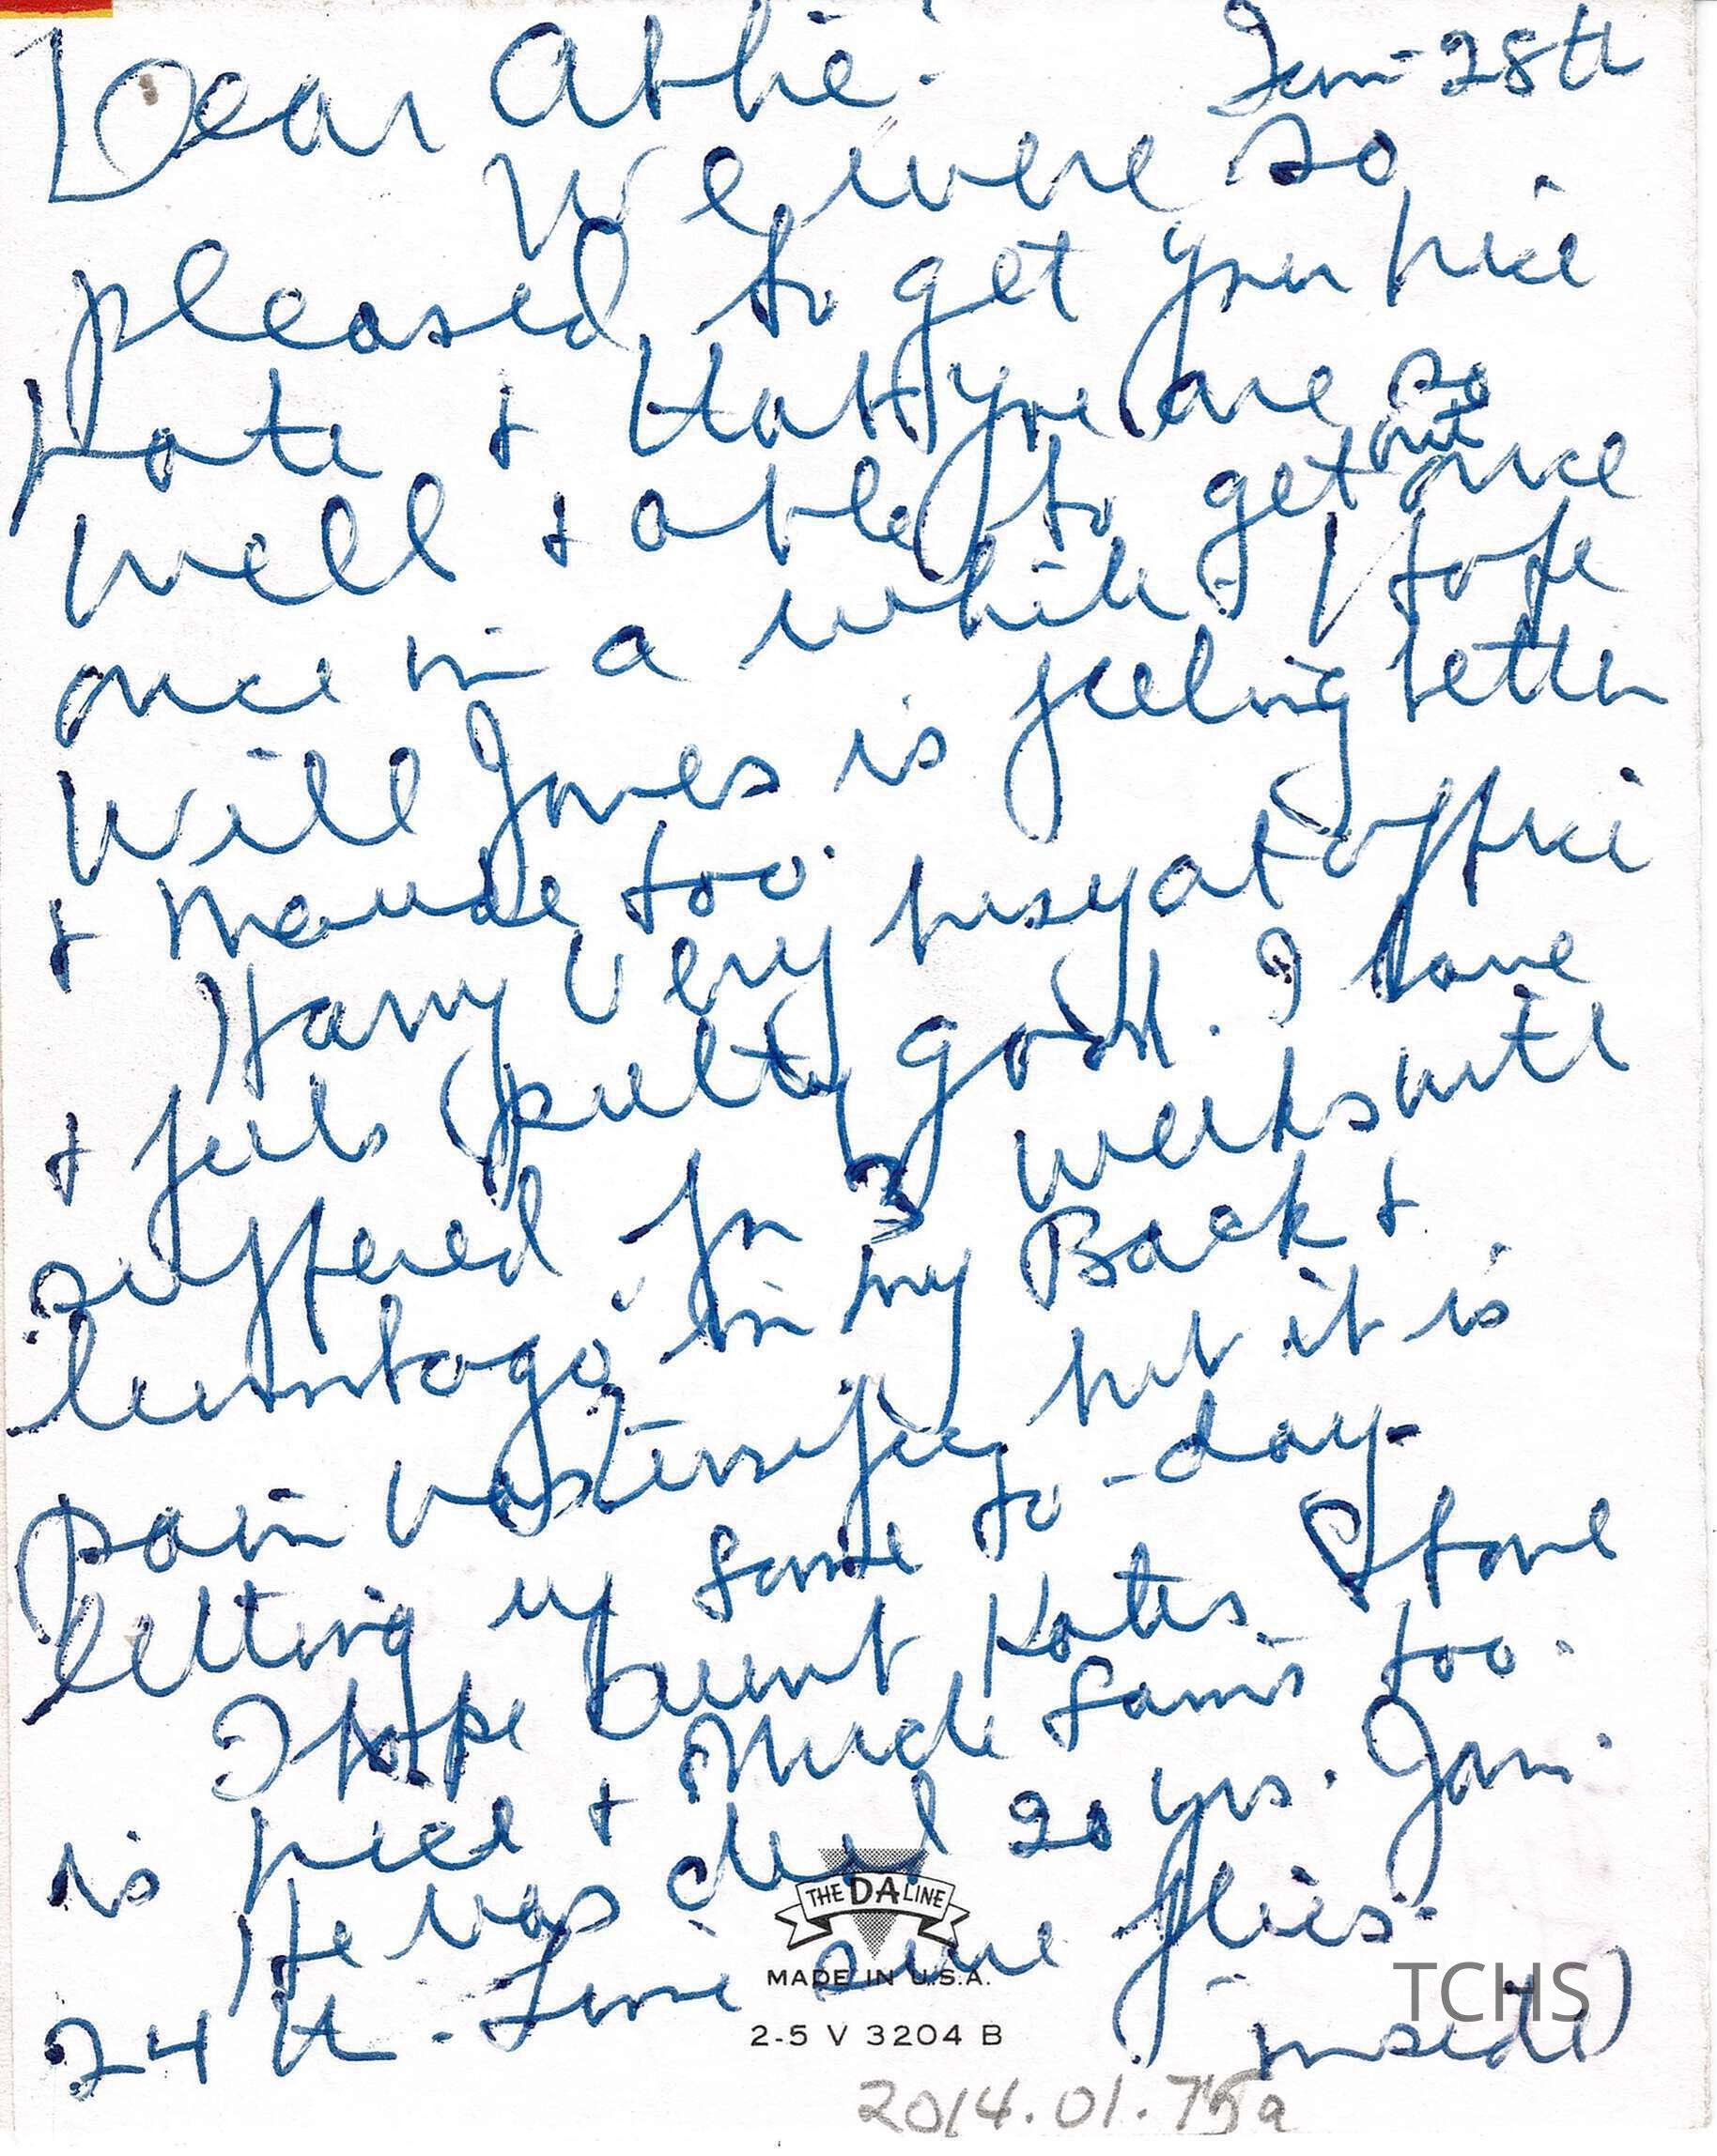 Dear Abbie: Jan-28th
We were so
pleased to get your nice
note & that you are so
well & able to get out once
once in a while. I hope
Will Jones is feeling better
& Maude too.
Harry very busy at office
& feels pretty good. I have
suffered for 3 weeks with
lumbago in my Back &
pain was terrifying but it is
letting up some to-day-
I hope Aunt Kates Stone
is nice & Uncle Sam's too.
He was dead 20 yrs. Jan.
24th. Time sure flies.
inside)
THE DA LINE
MADE IN U.S.A.
2-5 V 3204 B
TCHS
2014.01.75a